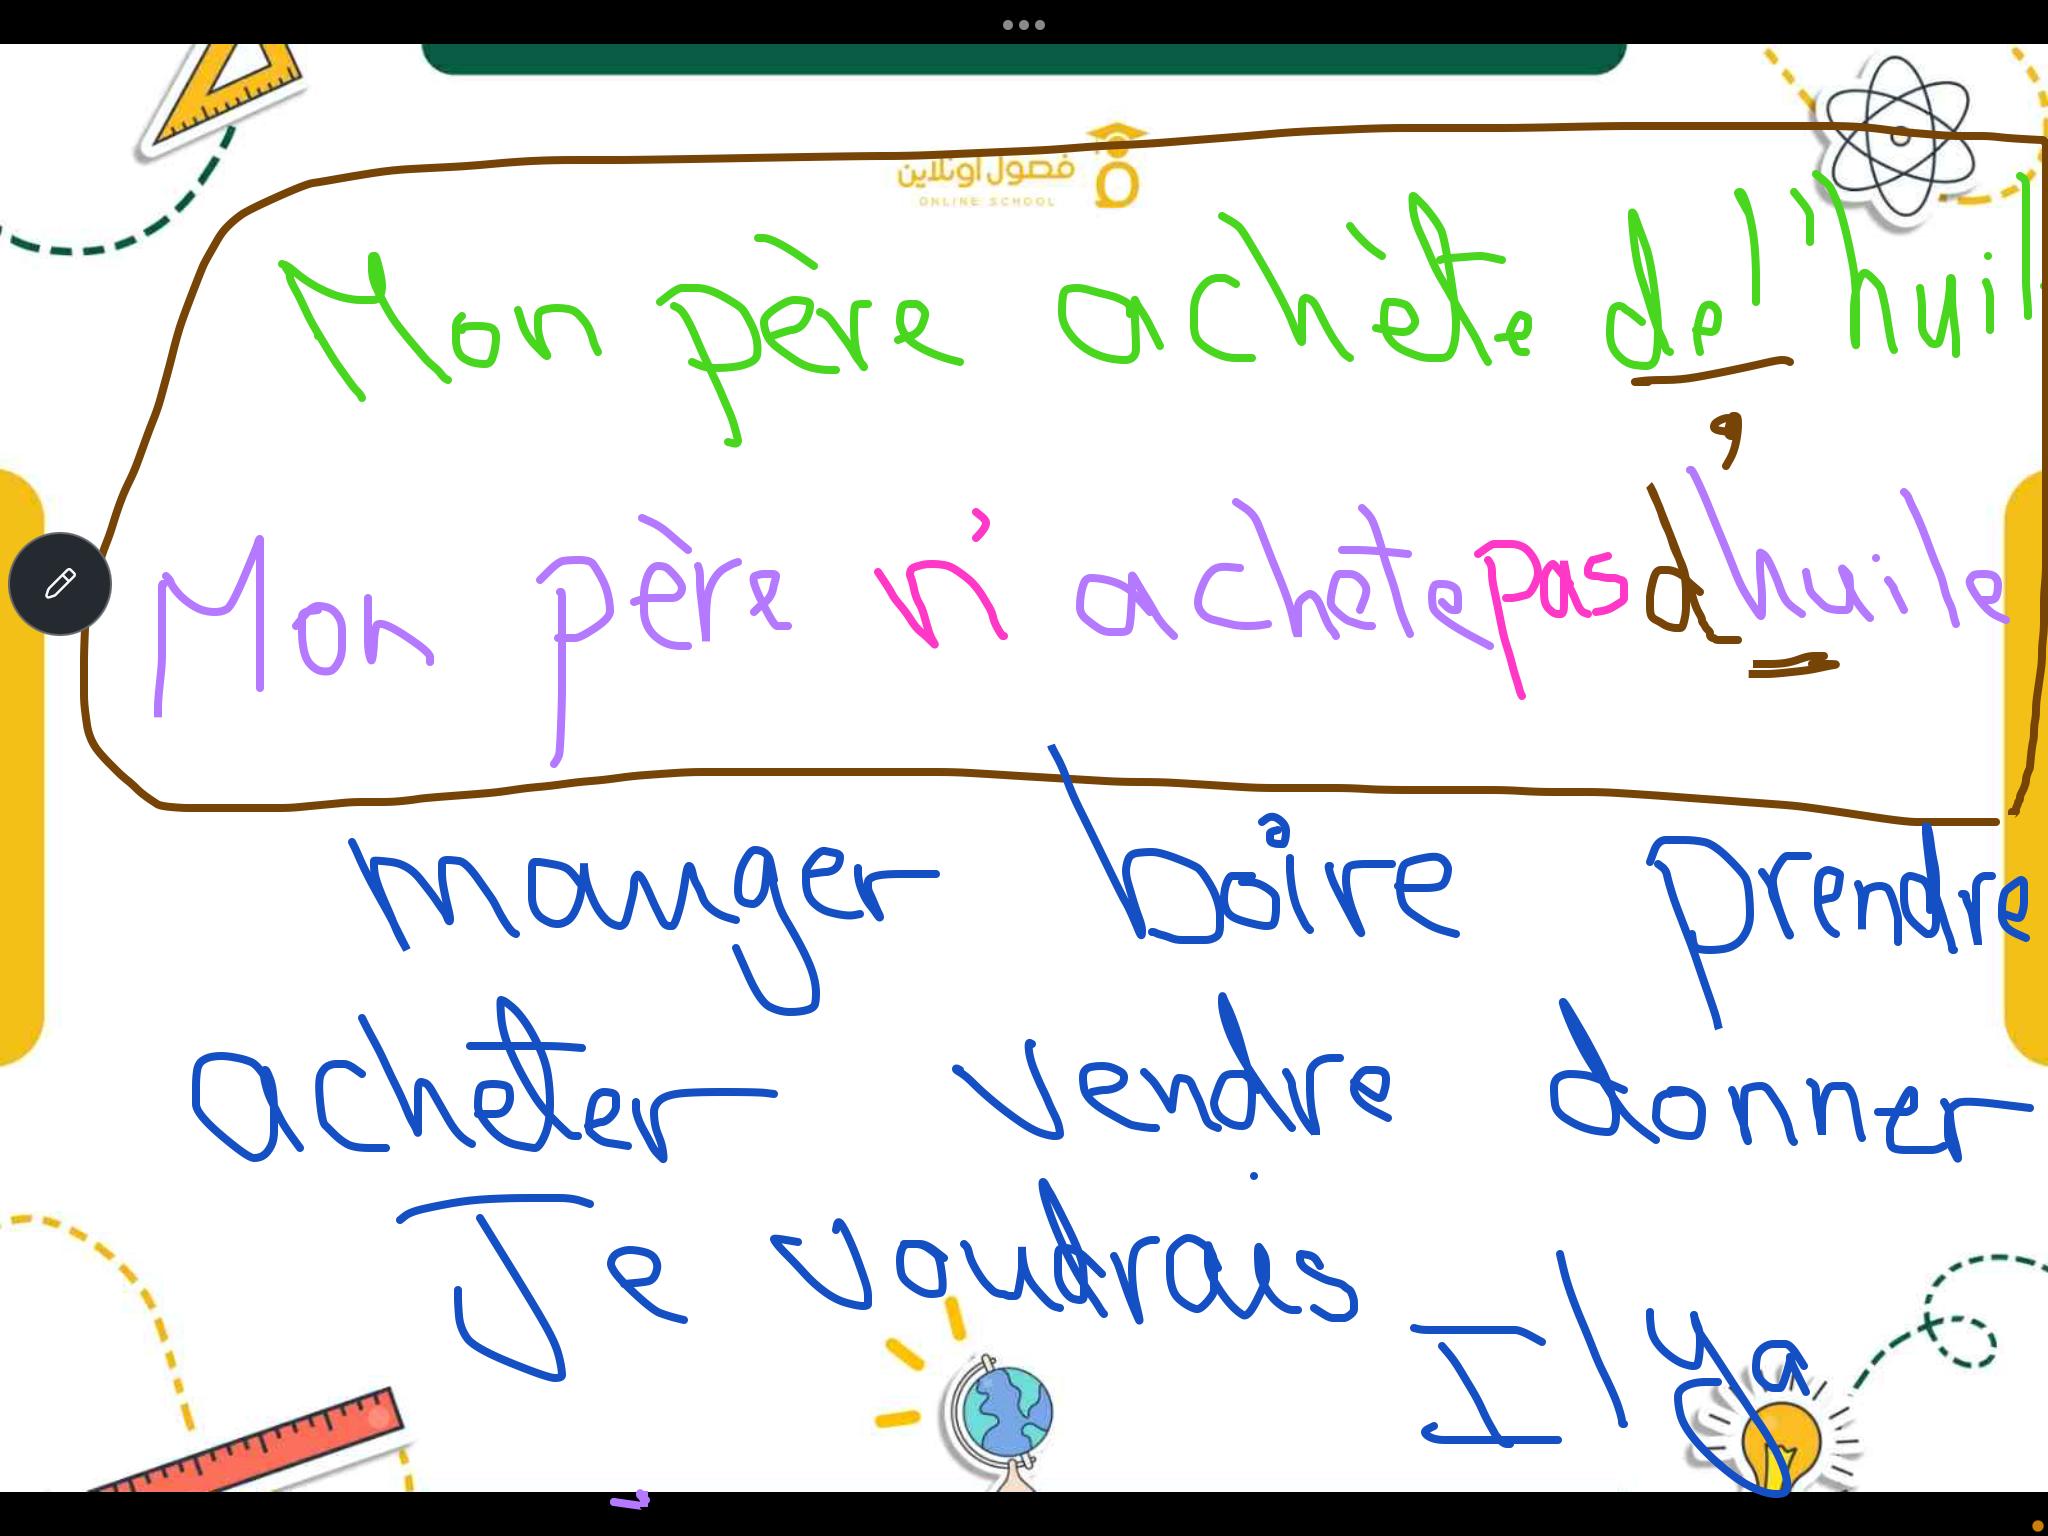 فصول اونلاين
ONLINE SCHOOL
Mon père achète de l'huil
Mon père n' achète pas d'huile
manger boire prendre
acheter vendre donner
Je voudrais
Il ya